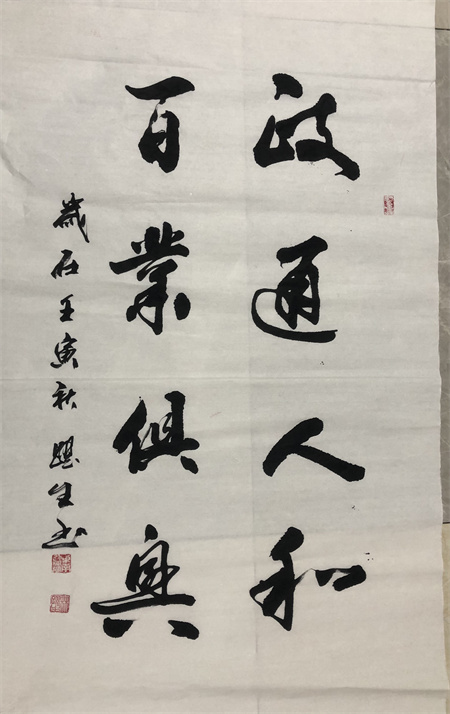 政通人和
百業俱興
歲在壬寅秋 生书